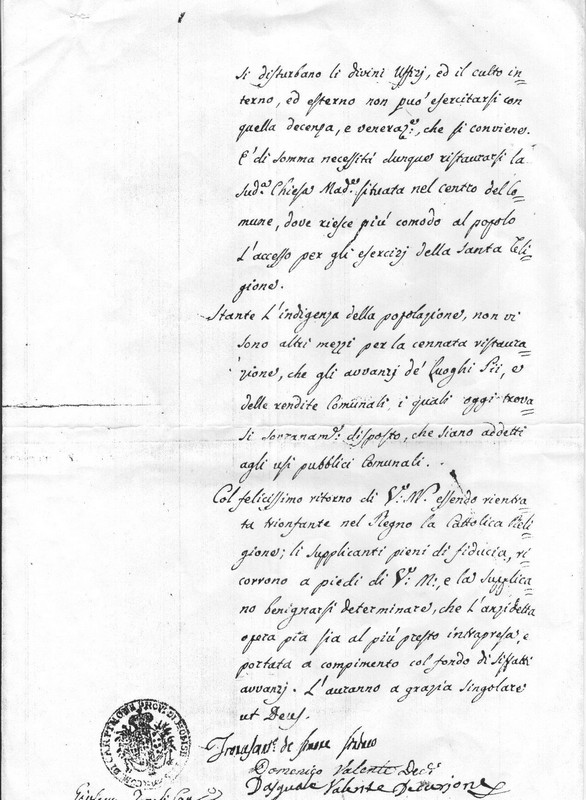 si disturbano li divini Uffizj, ed il culto in=
terno, ed esterno non può esercitarsi con
quella decenza, e veneraz:e, che si conviene.
E' di somma necessità dunque ristaurarsi la
sud:a Chiesa Mad:e situata nel centro del Co=
mune, dove riesce più comodo al popolo
l'accesso per gli esercizj della Santa Reli=
gione.
Stante l'indigenza della popolazione, non vi
sono altri mezzi per la cennata ristaura=
zione, che gli avvanzj de' Luoghi Pii, e
delle rendite Comunali, i quali oggi trova=
si sovranam:e disposto, che siano addetti
agli usi pubblici Comunali.
Col felicissimo ritorno di V:M. essendo rientra=
ta trionfante nel Regno la Cattolica Reli=
gione; li supplicanti pieni di fiducia, ri=
corrono a piedi di V:M:, e la supplica=
no benignarsi determinare, che l'anzidetta
opera pia sia al più presto intrapresa, e
portata a compimento col fondo di sifatti
avvanzj. L'auranno a grazia singolare
ut Deus.
de Simone Sindaco
Domenico Valente Dec:
Pasquale Valente Decurione